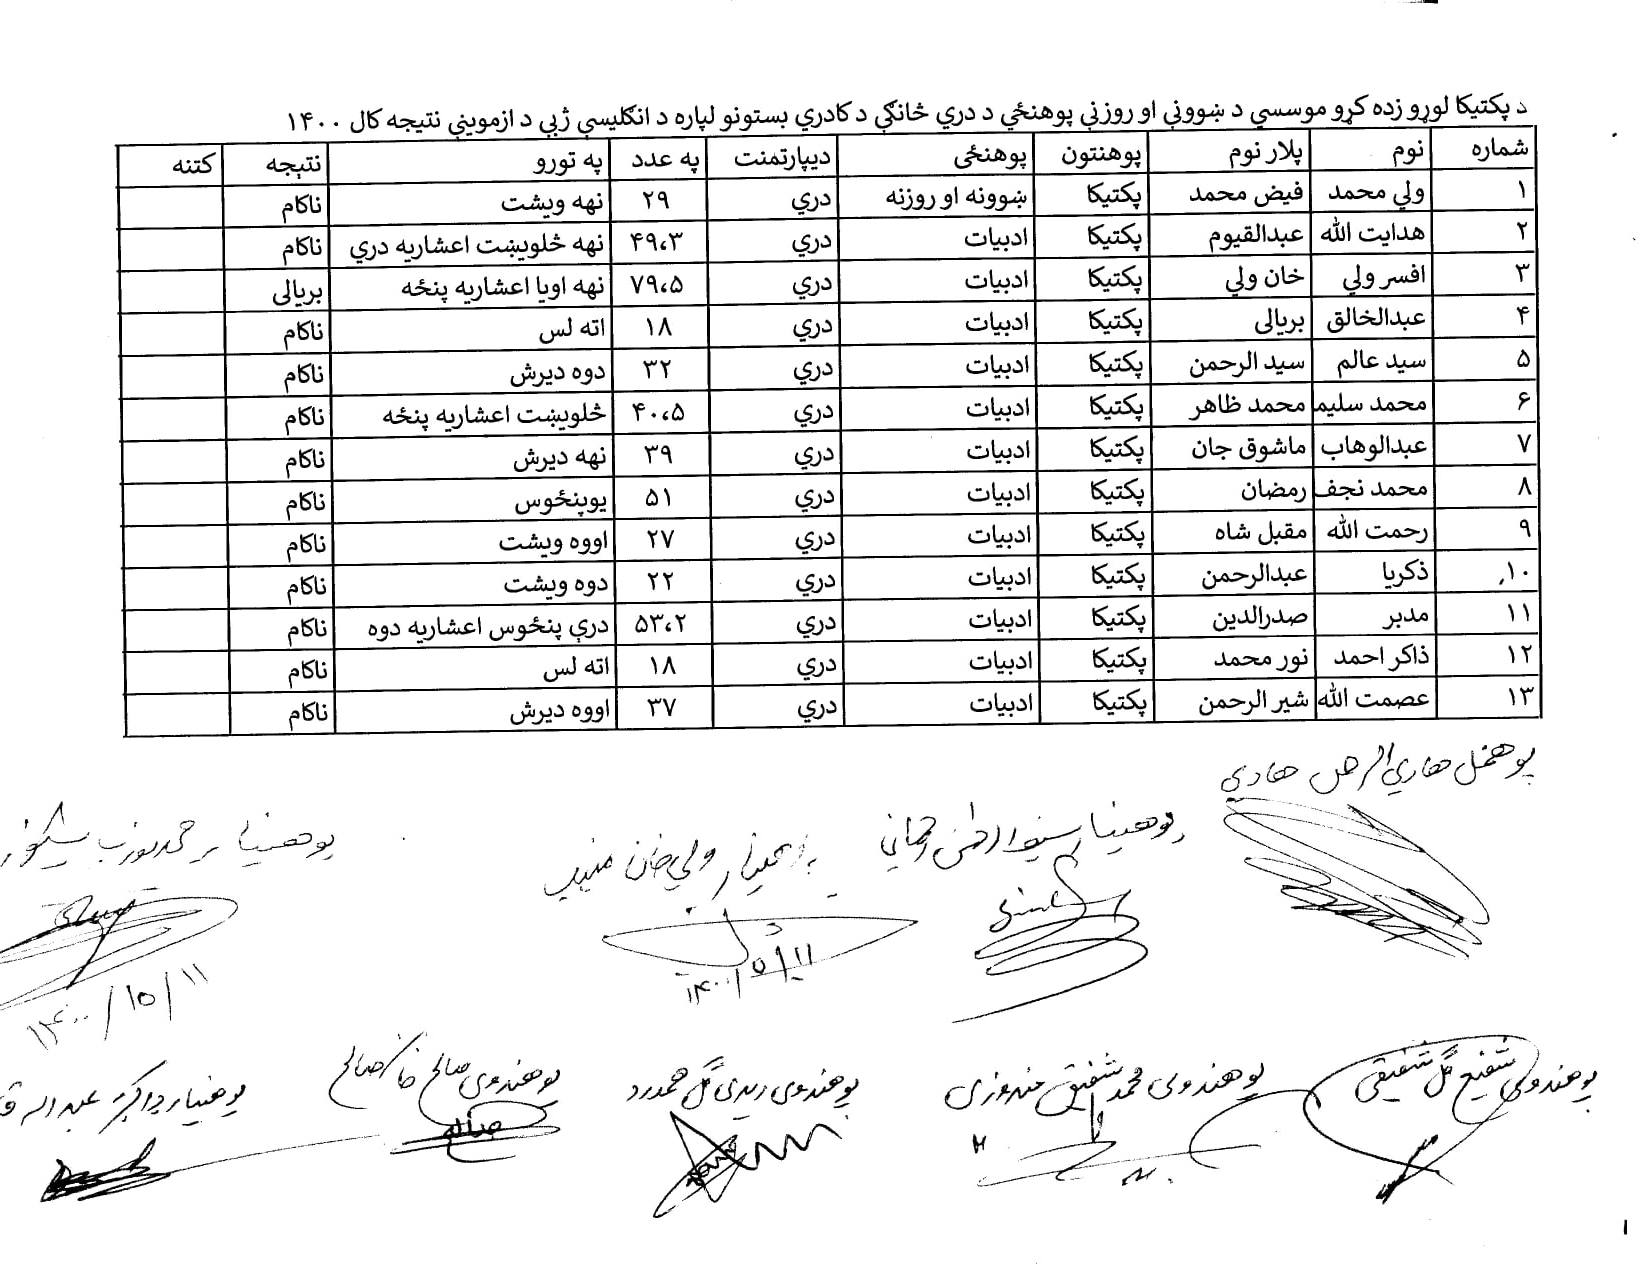 د پکتیکا لوړو زده کړو موسسې د ښوونې او روزنې پوهنځي د دري څانګې د کادري بستونو لپاره د انګلیسې ژبې د ازموینې نتیجه کال ۱۴۰۰
شماره نوم پلار نوم پوهنتون پوهنځی دیپارتمنت په عدد په تورو نتېجه کتنه
۱ ولي محمد فیض محمد پکتیکا ښوونه او روزنه دري ۲۹ نهه ویشت ناکام
۲ هدایت الله عبدالقیوم پکتیکا ادبیات دري ۴۹،۳ نهه څلویښت اعشاریه دري ناکام
۳ افسر ولي خان ولي پکتیکا ادبیات دري ۷۹،۵ نهه اویا اعشاریه پنځه بریالی
۴ عبدالخالق بریالی پکتیکا ادبیات دري ۱۸ اته لس ناکام
۵ سید عالم سید الرحمن پکتیکا ادبیات دري ۳۲ دوه دیرش ناکام
۶ محمد سلیم محمد ظاهر پکتیکا ادبیات دري ۴۰،۵ څلویښت اعشاریه پنځه ناکام
۷ عبدالوهاب ماشوق جان پکتیکا ادبیات دري ۳۹ نهه دیرش ناکام
۸ محمد نجف رمضان پکتیکا ادبیات دري ۵۱ یوپنځوس ناکام
۹ رحمت الله مقبل شاه پکتیکا ادبیات دري ۲۷ اووه ویشت ناکام
۱۰ ذکریا عبدالرحمن پکتیکا ادبیات دري ۲۲ دوه ویشت ناکام
۱۱ مدبر صدرالدین پکتیکا ادبیات دري ۵۳،۲ درې پنځوس اعشاریه دوه ناکام
۱۲ ذاکر احمد نور محمد پکتیکا ادبیات دري ۱۸ اته لس ناکام
۱۳ عصمت الله شیر الرحمن پکتیکا ادبیات دري ۳۷ اووه دیرش ناکام
پوهنمل هادي الرحمن هادي
پوهنیار رحماني
پوهنیار ولي خان منیب
پوهنیار
۱۴۰۰/۵/۱۱
۱۴۰۰/۱۵/۱۱
پوهندوی شفیع ګل شفیقي
پوهندوی محمد شفیق مندوزی
پوهندوی زیدی ګل همدرد
پوهندوی صالح خان صالح
پوهنیار ډاکټر